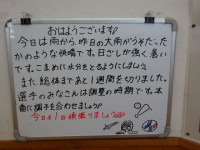 おはようございます!
今日は雨から、昨日の大雨がうそだった
かのような快晴です。日ざしが強く、暑い
です。こまめに水分をとるようにしましょう。
また、総体まであと1週間を切りました。
選手のみなさんは調整の時期です。本
番に調子を合わせましょう!
今日も1日頑張りましょう!